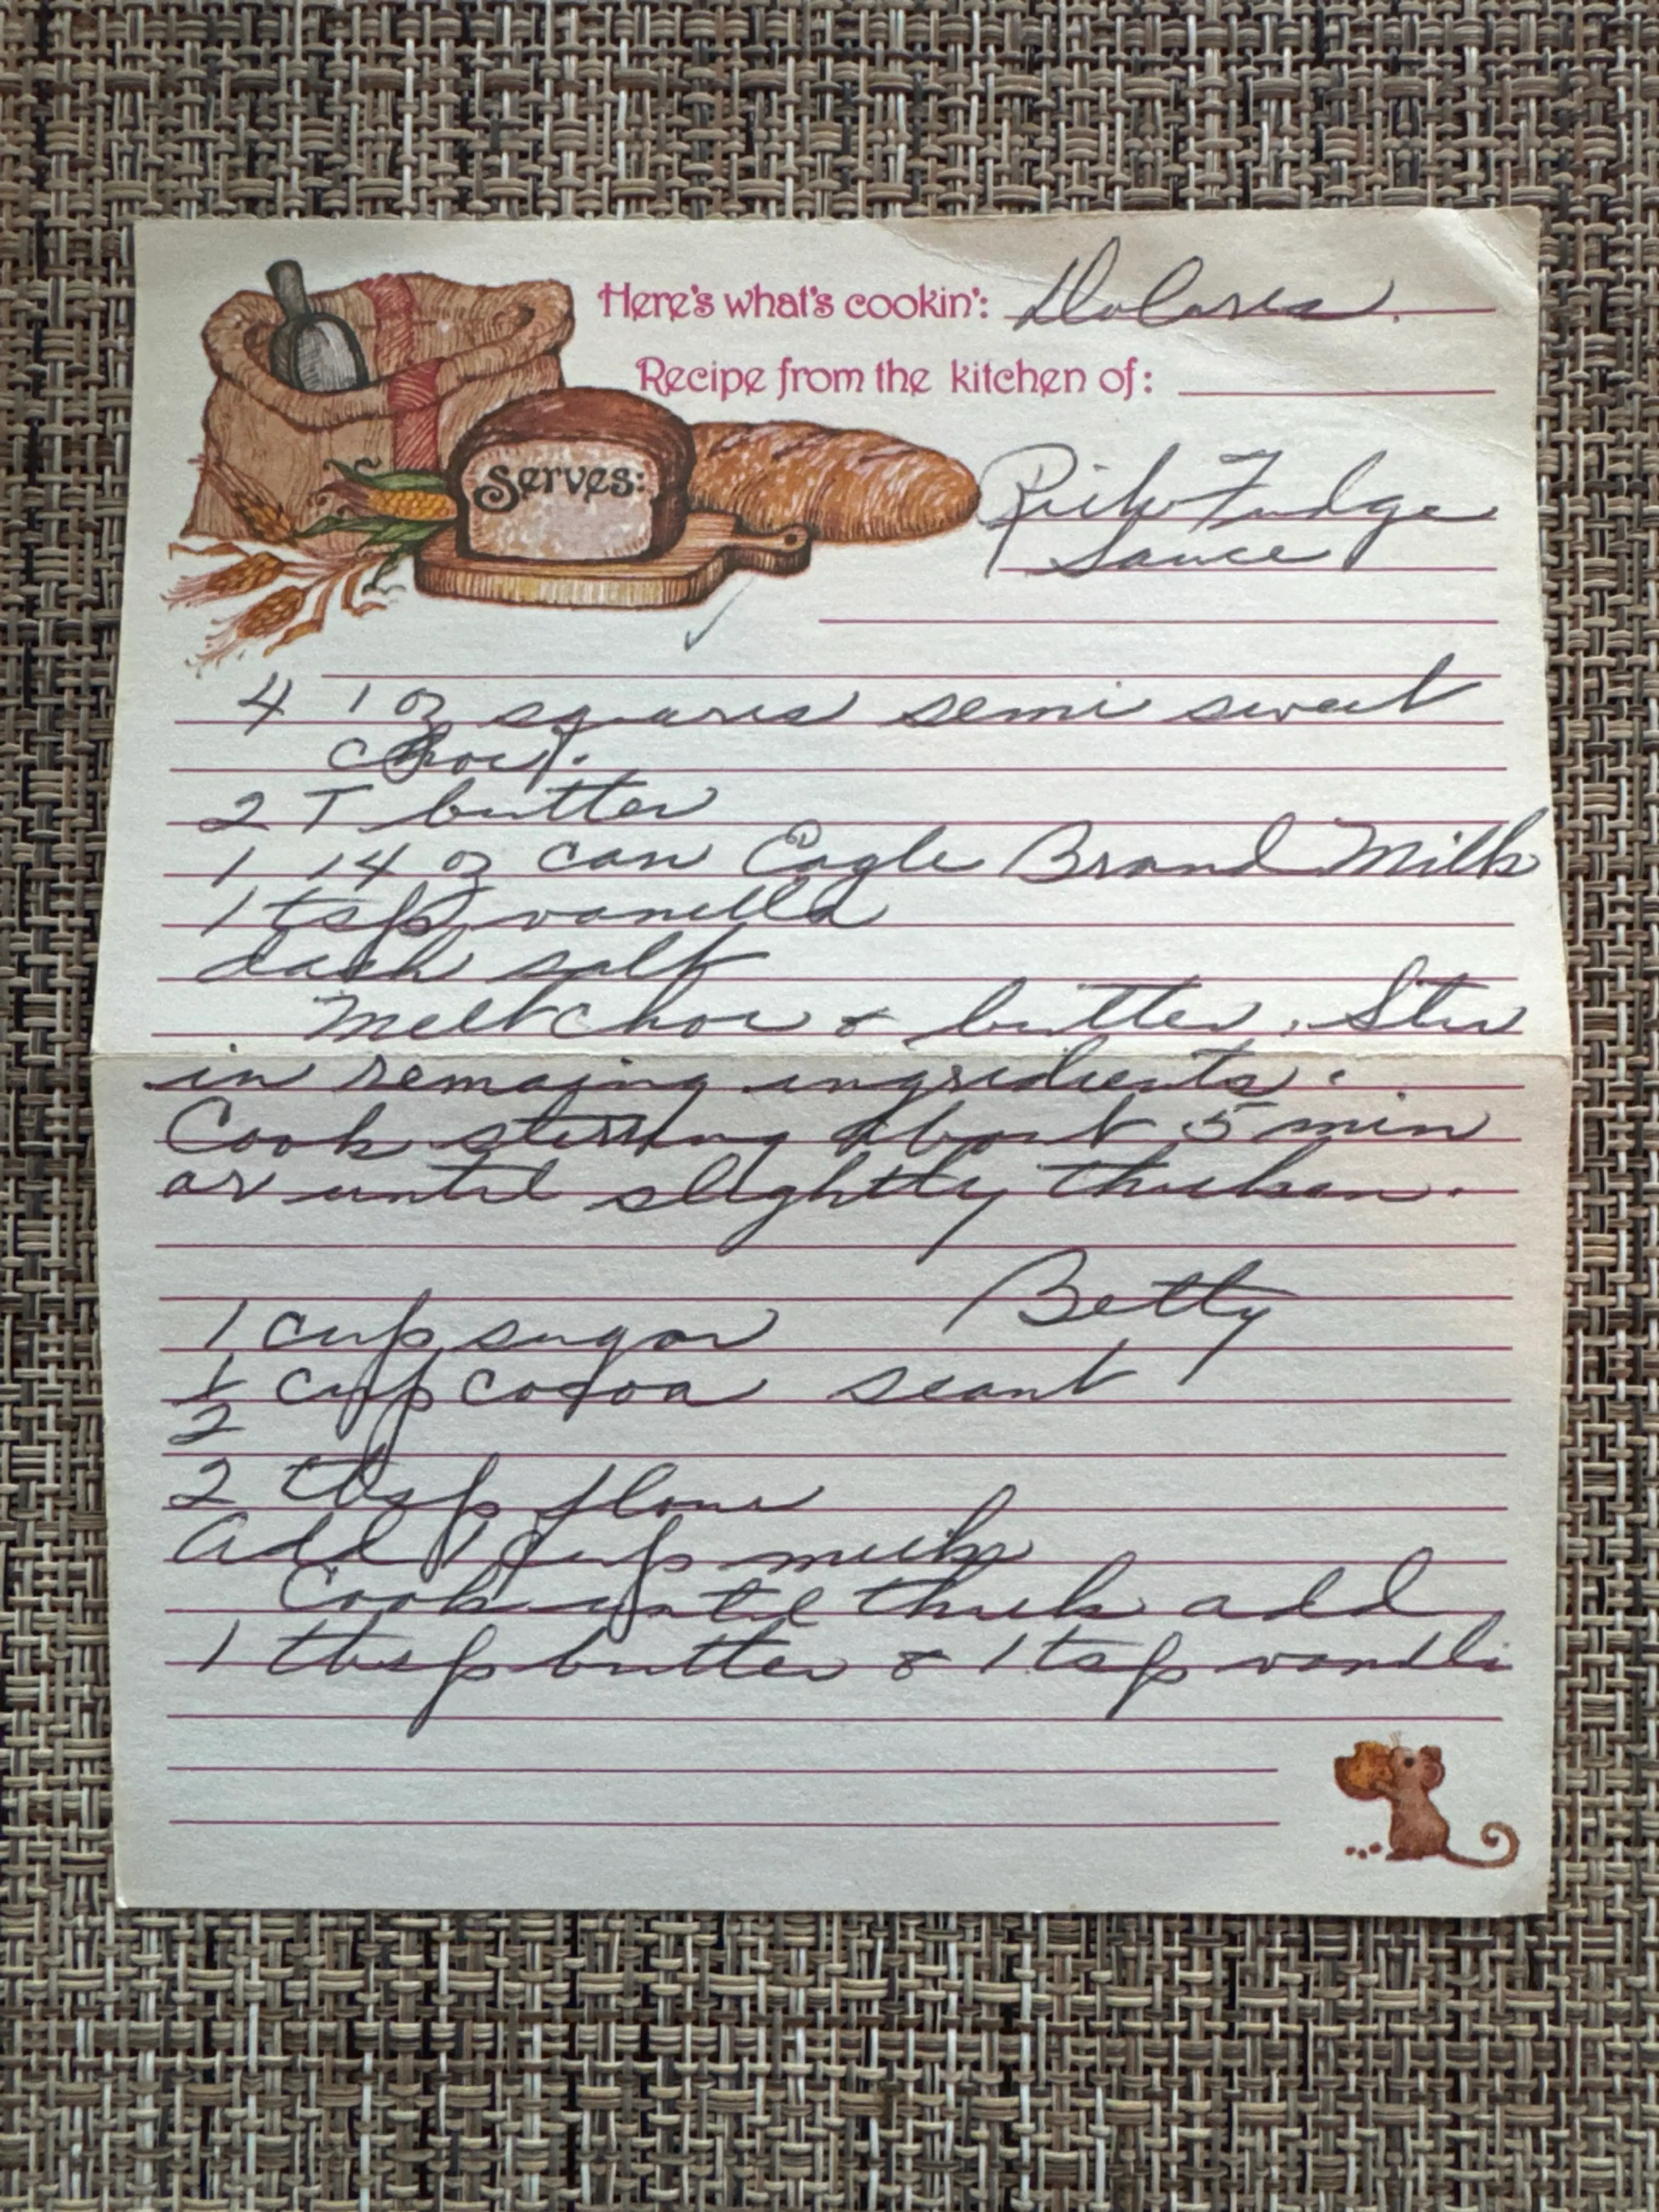 Here's what's cookin': Dolores.
Recipe from the kitchen of:
Serves:
Rich Fudge
Sauce
4 1 oz squares semi sweet
choc.
2 T butter
1 14 oz can Eagle Brand Milk
1 tsp vanilla
dash salt
Melt choc & butter. Stir
in remaing ingredients.
Cook stirring about 5 min
or until slightly thicken.
Betty
1 cup sugar
1/2 cup cocoa scant
2 tbsp flour
Add 1 cup milk
Cook until thick add
1 tbsp butter & 1 tsp vanilli